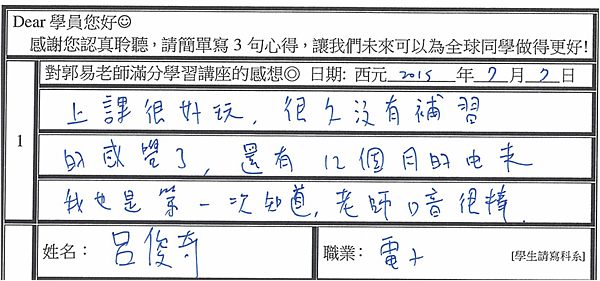 Dear 學員您好☺
感謝您認真聆聽，請簡單寫 3 句心得，讓我們未來可以為全球同學做得更好!
對郭易老師滿分學習講座的感想◎ 日期: 西元 2015 年 7 月 7 日
1
上課很好玩，很久沒有補習
的感覺了，還有 12 個月的由來
我也是第一次知道，老師口音很棒.
姓名： 呂俊奇 職業： 電子 [學生請寫科系]